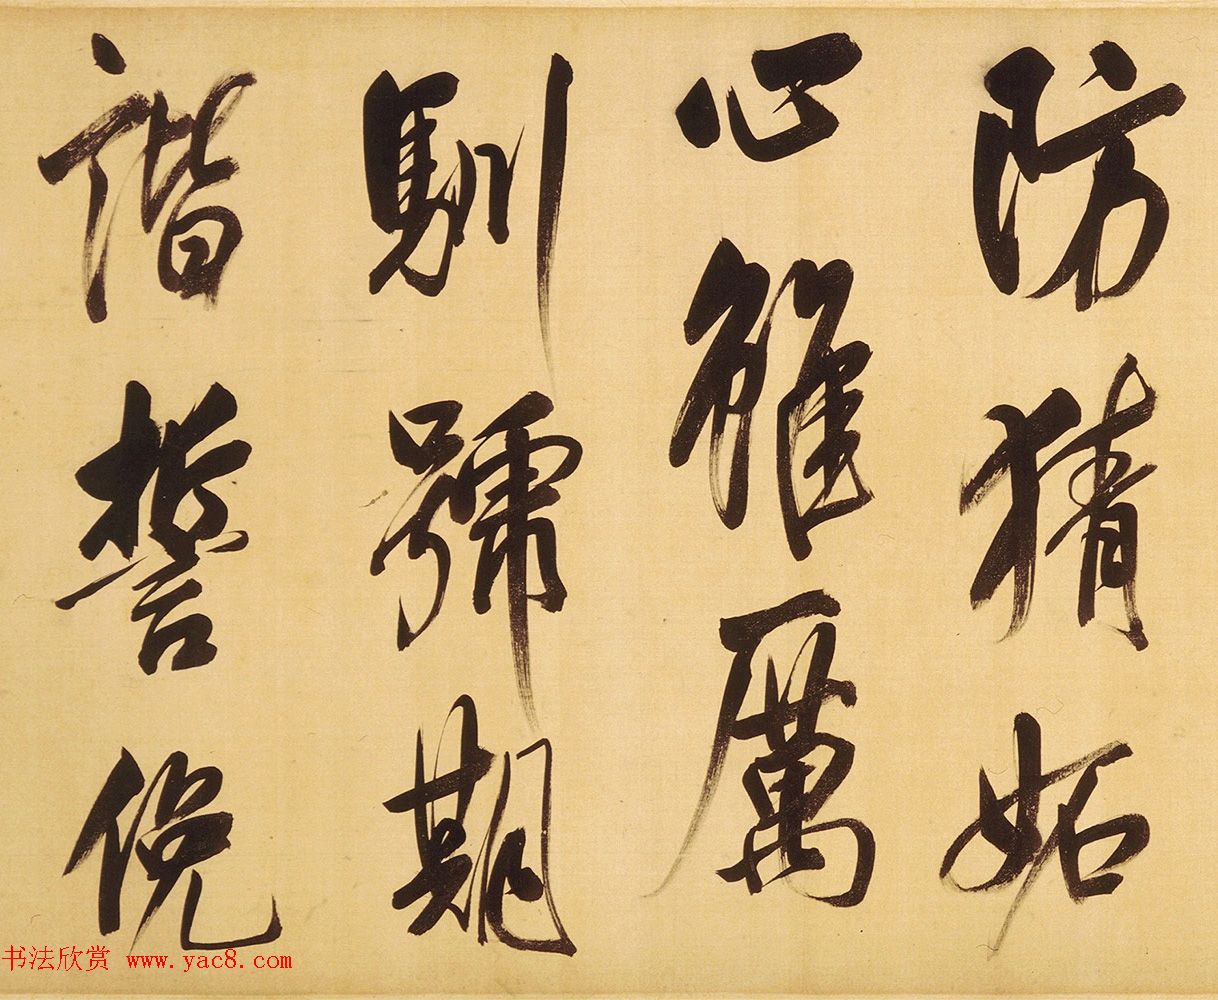 防猜妬
心厲
馴號期
諧誓俛
书法欣赏 www.yac8.com